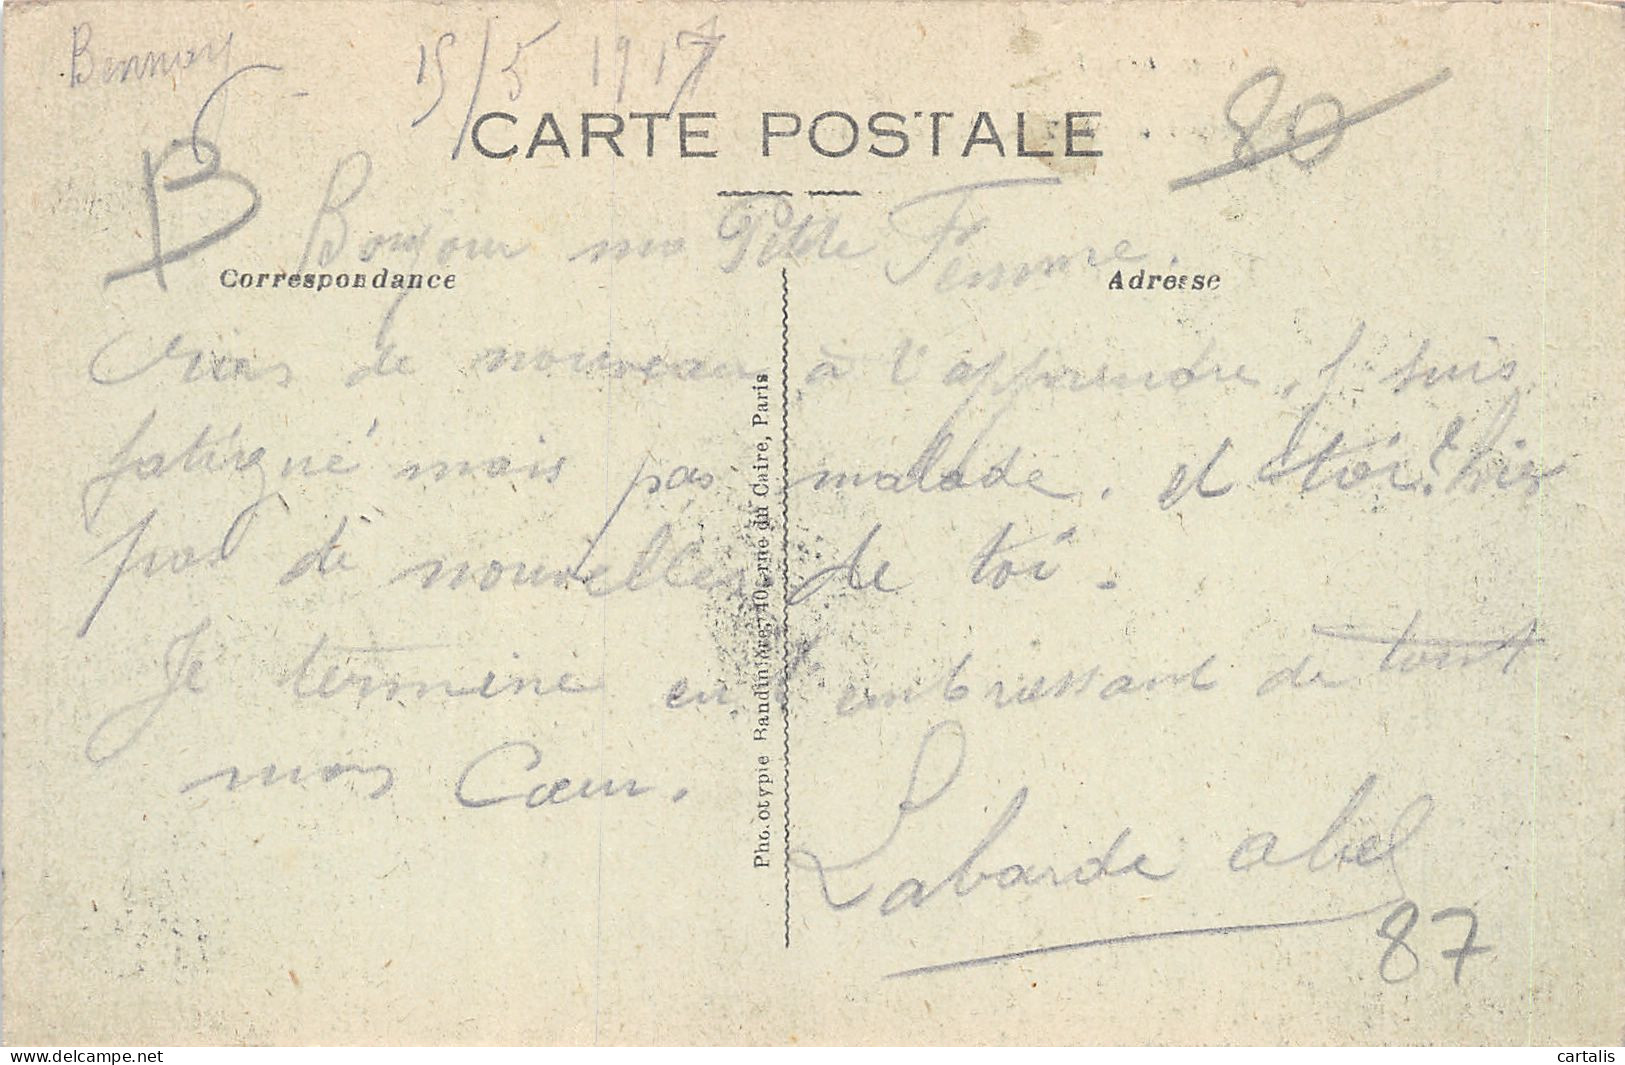 15/5 1917
80
CARTE POSTALE
B
Bonjour ma Petite Femme
Correspondance
Adresse
Rien de nouveau à t'apprendre. Je suis
fatigué mais pas malade. et toi? hier
pas de nouvelles de toi.
Je termine en t'embrassant de tout
mon Cœur.
Labarde abel
87
Phototypie Baudinière, 40, rue du Caire, Paris
cartalis